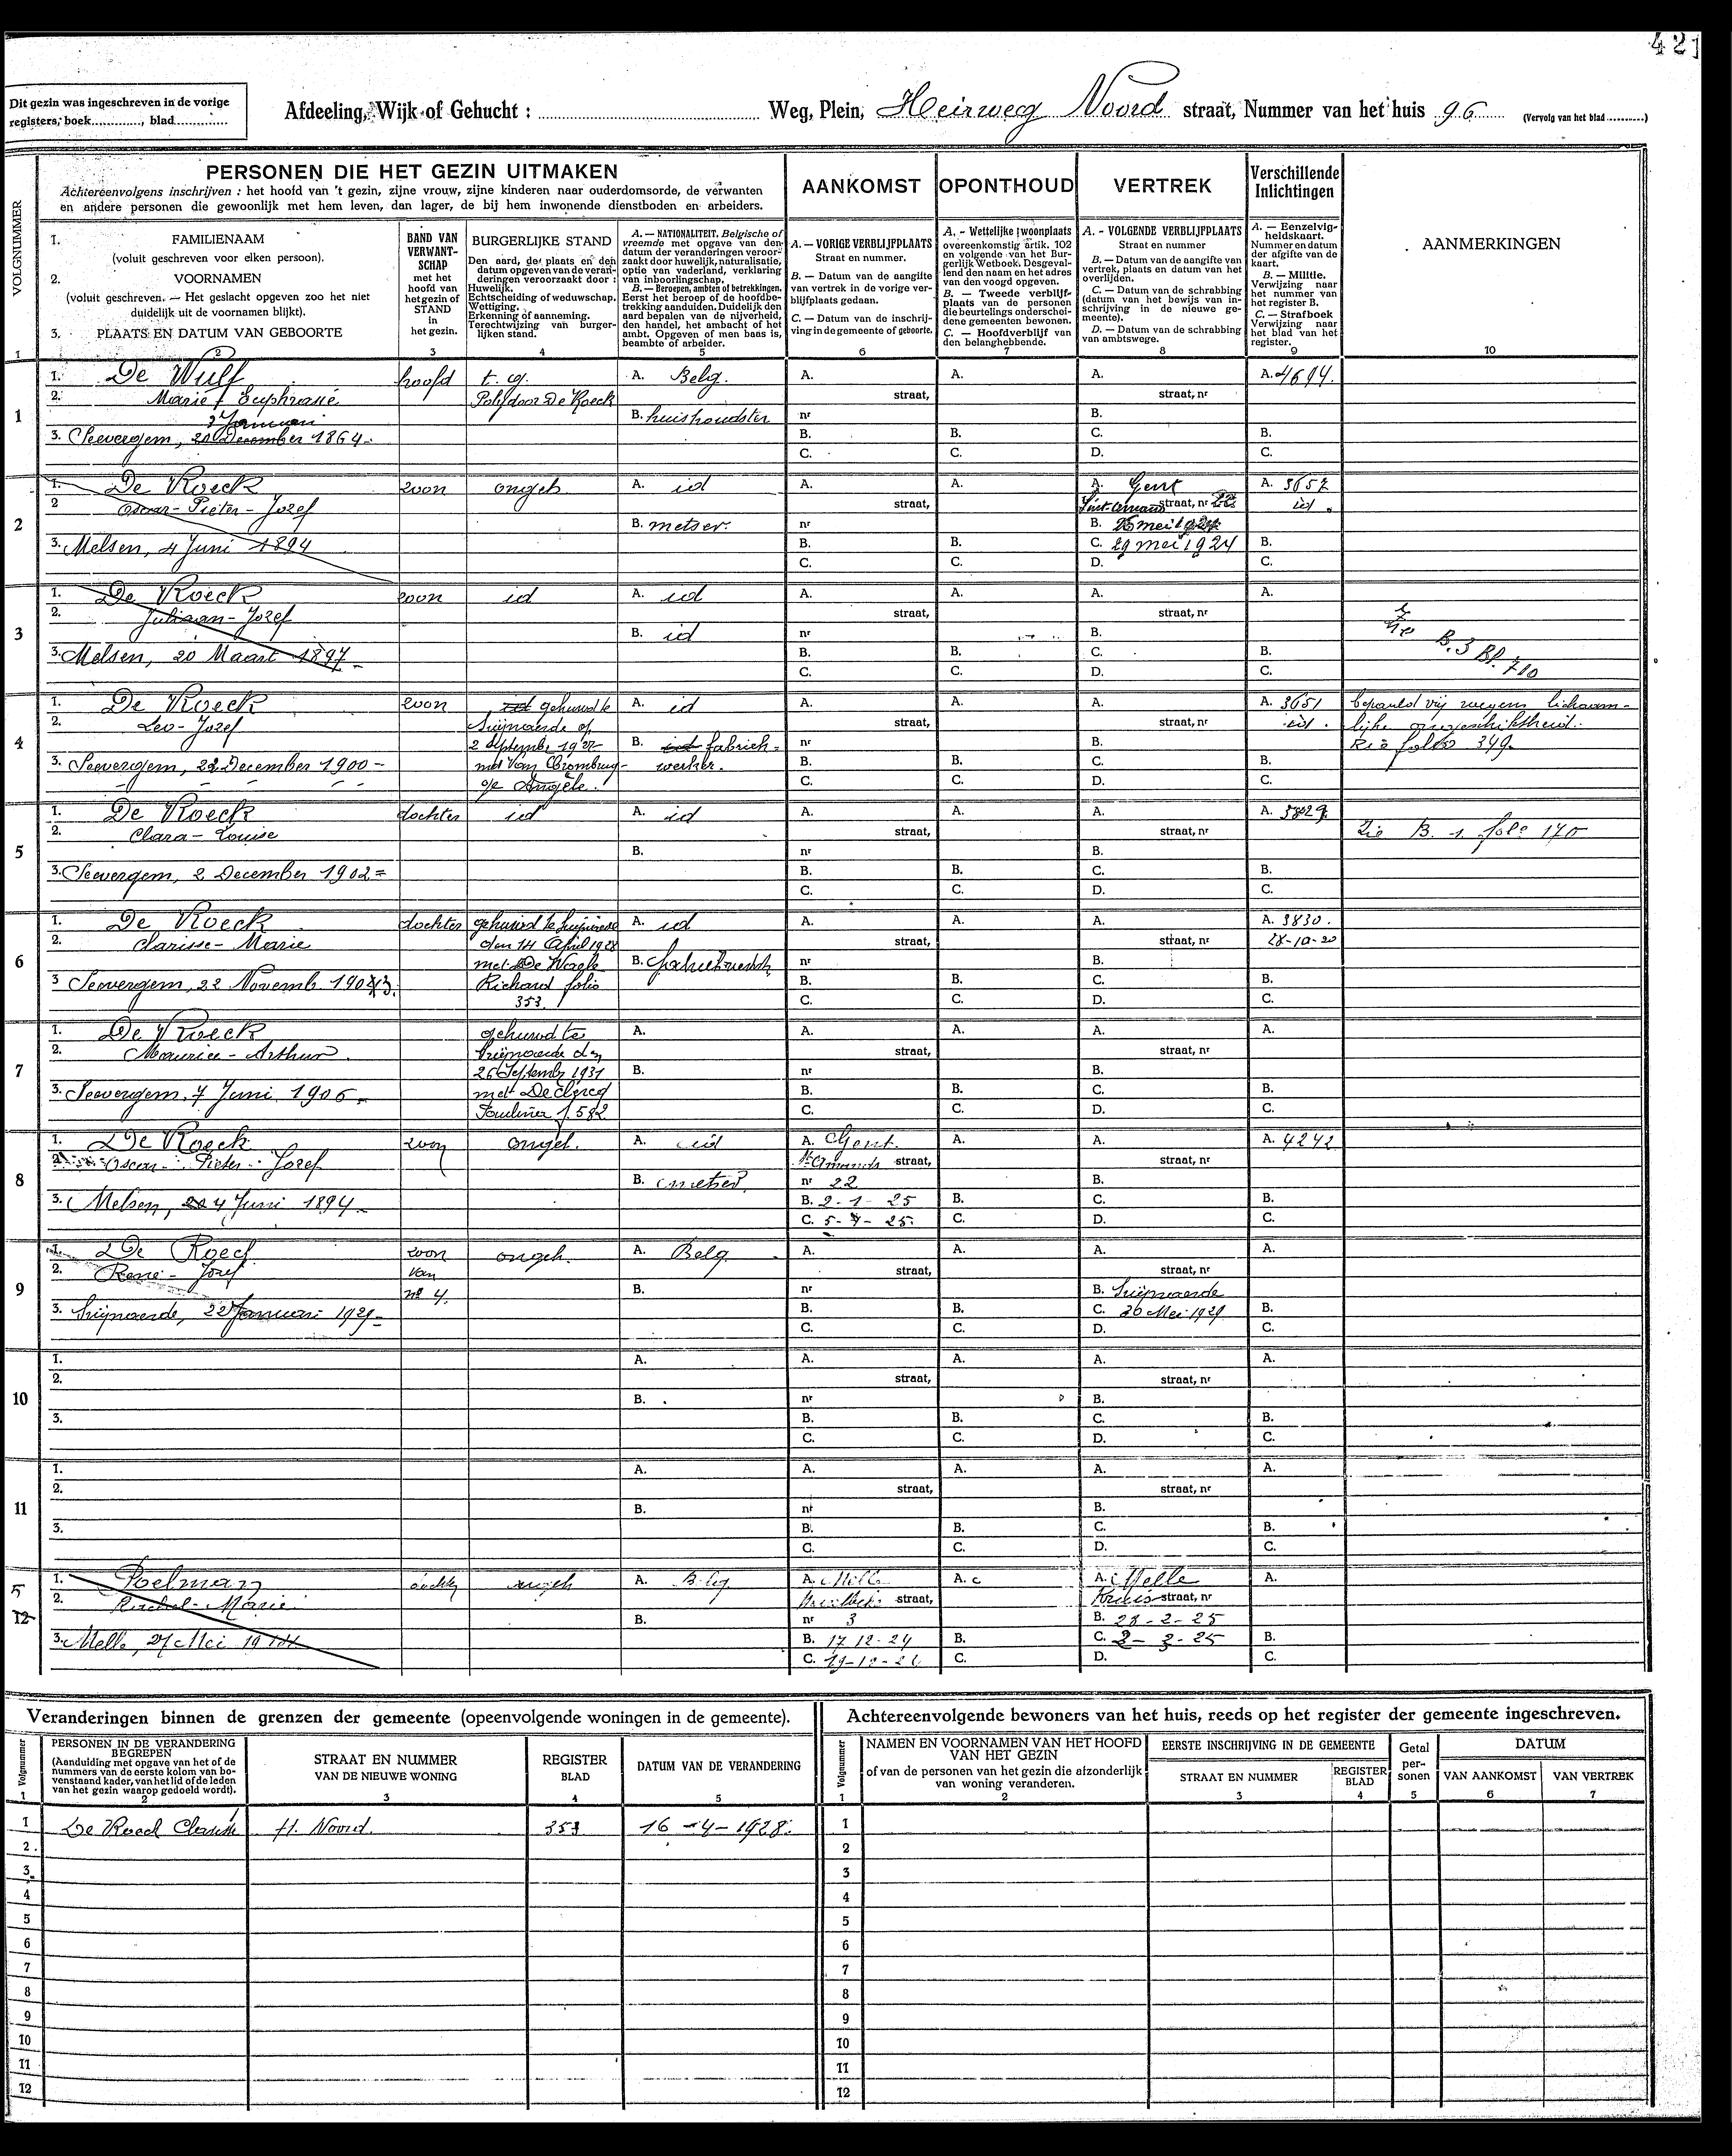 421
Dit gezin was ingeschreven in de vorige
registers, boek............, blad............
Afdeeling, Wijk of Gehucht : ............ Weg, Plein, Heirweg Noord straat, Nummer van het huis 96 (Vervolg van het blad ..........)
VOLGNUMMER
PERSONEN DIE HET GEZIN UITMAKEN
Achtereenvolgens inschrijven : het hoofd van 't gezin, zijne vrouw, zijne kinderen naar ouderdomsorde, de verwanten
en andere personen die gewoonlijk met hem leven, dan lager, de bij hem inwonende dienstboden en arbeiders.
AANKOMST
OPONTHOUD
VERTREK
Verschillende
Inlichtingen
AANMERKINGEN
1. FAMILIENAAM
(voluit geschreven voor elken persoon).
2. VOORNAMEN
(voluit geschreven. — Het geslacht opgeven zoo het niet
duidelijk uit de voornamen blijkt).
3. PLAATS EN DATUM VAN GEBOORTE
BAND VAN
VERWANT-
SCHAP
met het
hoofd van
het gezin of
STAND
in
het gezin.
BURGERLIJKE STAND
Den aard, de plaats en den
datum opgeven van de veran-
deringen veroorzaakt door :
Huwelijk.
Echtscheiding of weduwschap.
Wettiging.
Erkenning of aanneming.
Terechtwijzing van burger-
lijken stand.
A. — NATIONALITEIT, Belgische of
vreemde met opgave van den
datum der veranderingen veroor-
zaakt door huwelijk, naturalisatie,
optie van vaderland, verklaring
van inboorlingschap.
B. — Beroepen, ambten of betrekkingen.
Eerst het beroep of de hoofdbe-
trekking aanduiden. Duidelijk den
aard bepalen van de nijverheid,
den handel, het ambacht of het
ambt. Opgeven of men baas is,
beambte of arbeider.
A. — VORIGE VERBLIJFPLAATS
Straat en nummer.
B. — Datum van de aangifte
van vertrek in de vorige ver-
blijfplaats gedaan.
C. — Datum van de inschrij-
ving in de gemeente of geboorte.
A. - Wettelijke woonplaats
overeenkomstig artik. 102
en volgende van het Bur-
gerlijk Wetboek. Desgeval-
lend den naam en het adres
van den voogd opgeven.
B. — Tweede verblijf-
plaats van de personen
die beurtelings onderschei-
dene gemeenten bewonen.
C. — Hoofdverblijf van
den belanghebbende.
A. - VOLGENDE VERBLIJFPLAATS
Straat en nummer
B. — Datum van de aangifte van
vertrek, plaats en datum van het
overlijden.
C. — Datum van de schrabbing
(datum van het bewijs van in-
schrijving in de nieuwe ge-
meente).
D. — Datum van de schrabbing
van ambtswege.
A. — Eenzelvig-
heidskaart.
Nummer en datum
der afgifte van de
kaart.
B. — Militie.
Verwijzing naar
het nummer van
het register B.
C. — Strafboek
Verwijzing naar
het blad van het
register.
1 2 3 4 5 6 7 8 9 10
1
1. De Wulf hoofd A. Belg. A. A. A. A. 4694.
2. Marie Euphrasie Polydoor De Roeck straat, straat, nr
3 Januari B. huishoudster nr B.
3. Seevergem, 21 December 1864. B. B. C. B.
C. C. D. C.
2
1. De Roeck zoon ongeh A. id A. A. A. Gent A. 3657
2 Oscar-Pieter-Jozef straat, Sint-Amand straat, nr 22 id.
B. metser. nr B. mei 1924
3. Melsen, 4 Juni 1894 B. B. C. 29 mei 1924 B.
C. C. D. C.
3
1. De Roeck zoon id A. id A. A. A. A.
2. Juliaan-Jozef straat, straat, nr
B. id nr B. B.3 Bl. 710
3. Melsen, 20 Maart 1897 B. B. C. B.
C. C. D. C.
4
1. De Roeck zoon gehuwd te A. id A. A. A. A. 3651 bepaald vrij wegens lichaam-
2. Leo-Jozef Zwijnaarde op straat, straat, nr id. lijke ongeschiktheid.
2 September B. id fabriek- nr B. Zie folio 349.
3. Seevergem, 22 December 1900 met Van Crombrug- werker. B. B. C. B.
ge Angèle. C. C. D. C.
5
1. De Roeck dochter id A. id A. A. A. A. 3829.
2. Clara-Louise straat, straat, nr Zie B. 1 fol° 170
B. nr B.
3. Seevergem, 2 December 1902 B. B. C. B.
C. C. D. C.
6
1. De Roeck dochter gehuwd te Zwijnaarde A. id A. A. A. A. 3830.
2. Clarisse-Marie den 14 April 1928 straat, straat, nr 28-10-20
met De B. nr B.
3 Seevergem, 22 Novemb. 1903. Richard folio B. B. C. B.
353. C. C. D. C.
7
1. De Roeck gehuwd te A. A. A. A. A.
2. Maurice-Arthur. Zwijnaarde den straat, straat, nr
26 September 1931 B. nr B.
3. Seevergem, 7 Juni 1906. met De Clercq B. B. C. B.
f. 582 C. C. D. C.
8
1. De Roeck zoon ongeh. A. id A. Gent. A. A. A. 4242
2. Oscar-Pieter-Jozef St Amands straat, straat, nr
B. metser. nr 22 B.
3. Melsen, 4 Juni 1894 B. 2-1-25 B. C. B.
C. 5-4-25. C. D. C.
9
1. De Roeck zoon ongeh. A. Belg. A. A. A. A.
2. René-Jozef van straat, straat, nr
n° 4. B. nr B. Zwijnaarde
3. Zwijnaarde, 22 Januari 1929 B. B. C. 20 Mei 1929 B.
C. C. D. C.
10
1. A. A. A. A. A.
2. straat, straat, nr
B. nr B.
3. B. B. C. B.
C. C. D. C.
11
1. A. A. A. A. A.
2. straat, straat, nr
B. nr B.
3. B. B. C. B.
C. C. D. C.
12
1. Poelman dochter ongeh A. Belg A. Melle A. A. Melle A.
2. Rachel-Marie straat, Kruis straat, nr
B. nr 3 B. 28-2-25
3. Melle, 27 Mei B. 17-12-24 B. C. 2-3-25 B.
C. 19-12-24 C. D. C.
Veranderingen binnen de grenzen der gemeente (opeenvolgende woningen in de gemeente).
Volgnummer
PERSONEN IN DE VERANDERING
BEGREPEN
(Aanduiding met opgave van het of de
nummers van de eerste kolom van bo-
venstaand kader, van het lid of de leden
van het gezin waarop gedoeld wordt).
STRAAT EN NUMMER
VAN DE NIEUWE WONING
REGISTER
BLAD
DATUM VAN DE VERANDERING
1 2 3 4 5
1 De Roeck Clarisse H. Noord. 353 16-4-1928.
2
3
4
5
6
7
8
9
10
11
12
Achtereenvolgende bewoners van het huis, reeds op het register der gemeente ingeschreven.
Volgnummer
NAMEN EN VOORNAMEN VAN HET HOOFD
VAN HET GEZIN
of van de personen van het gezin die afzonderlijk
van woning veranderen.
EERSTE INSCHRIJVING IN DE GEMEENTE
STRAAT EN NUMMER
REGISTER
BLAD
Getal
per-
sonen
DATUM
VAN AANKOMST
VAN VERTREK
1 2 3 4 5 6 7
1
2
3
4
5
6
7
8
9
10
11
12